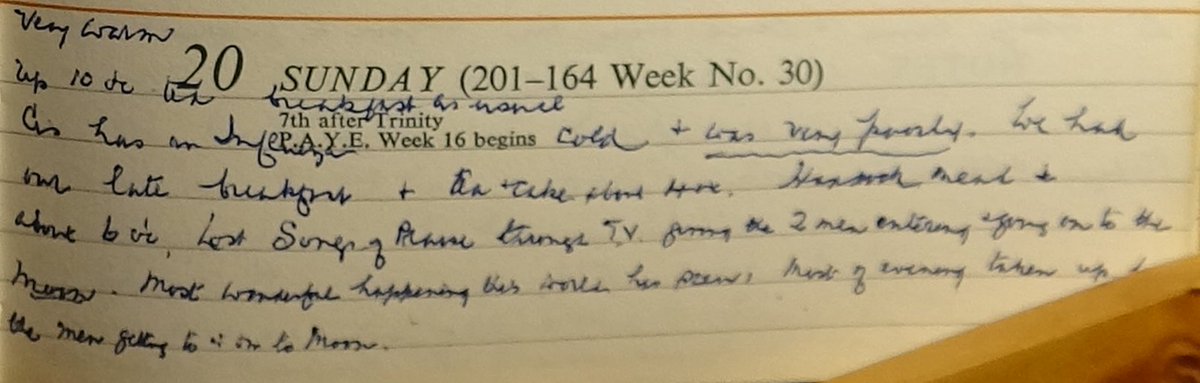 Very warm
20 SUNDAY (201–164 Week No. 30)
Up 10 oc tea breakfast as usual
7th after Trinity
P.A.Y.E. Week 16 begins
has an Influenza cold + was very poorly. We had
our late breakfast + tea + cake about 4 o'c. meal +
about 6 o'c. Lost Songs of Praise through T.V. giving the 2 men entering + going on to the
Moon. Most wonderful happening this world has seen. Most of evening taken up
the men getting to + on to Moon.